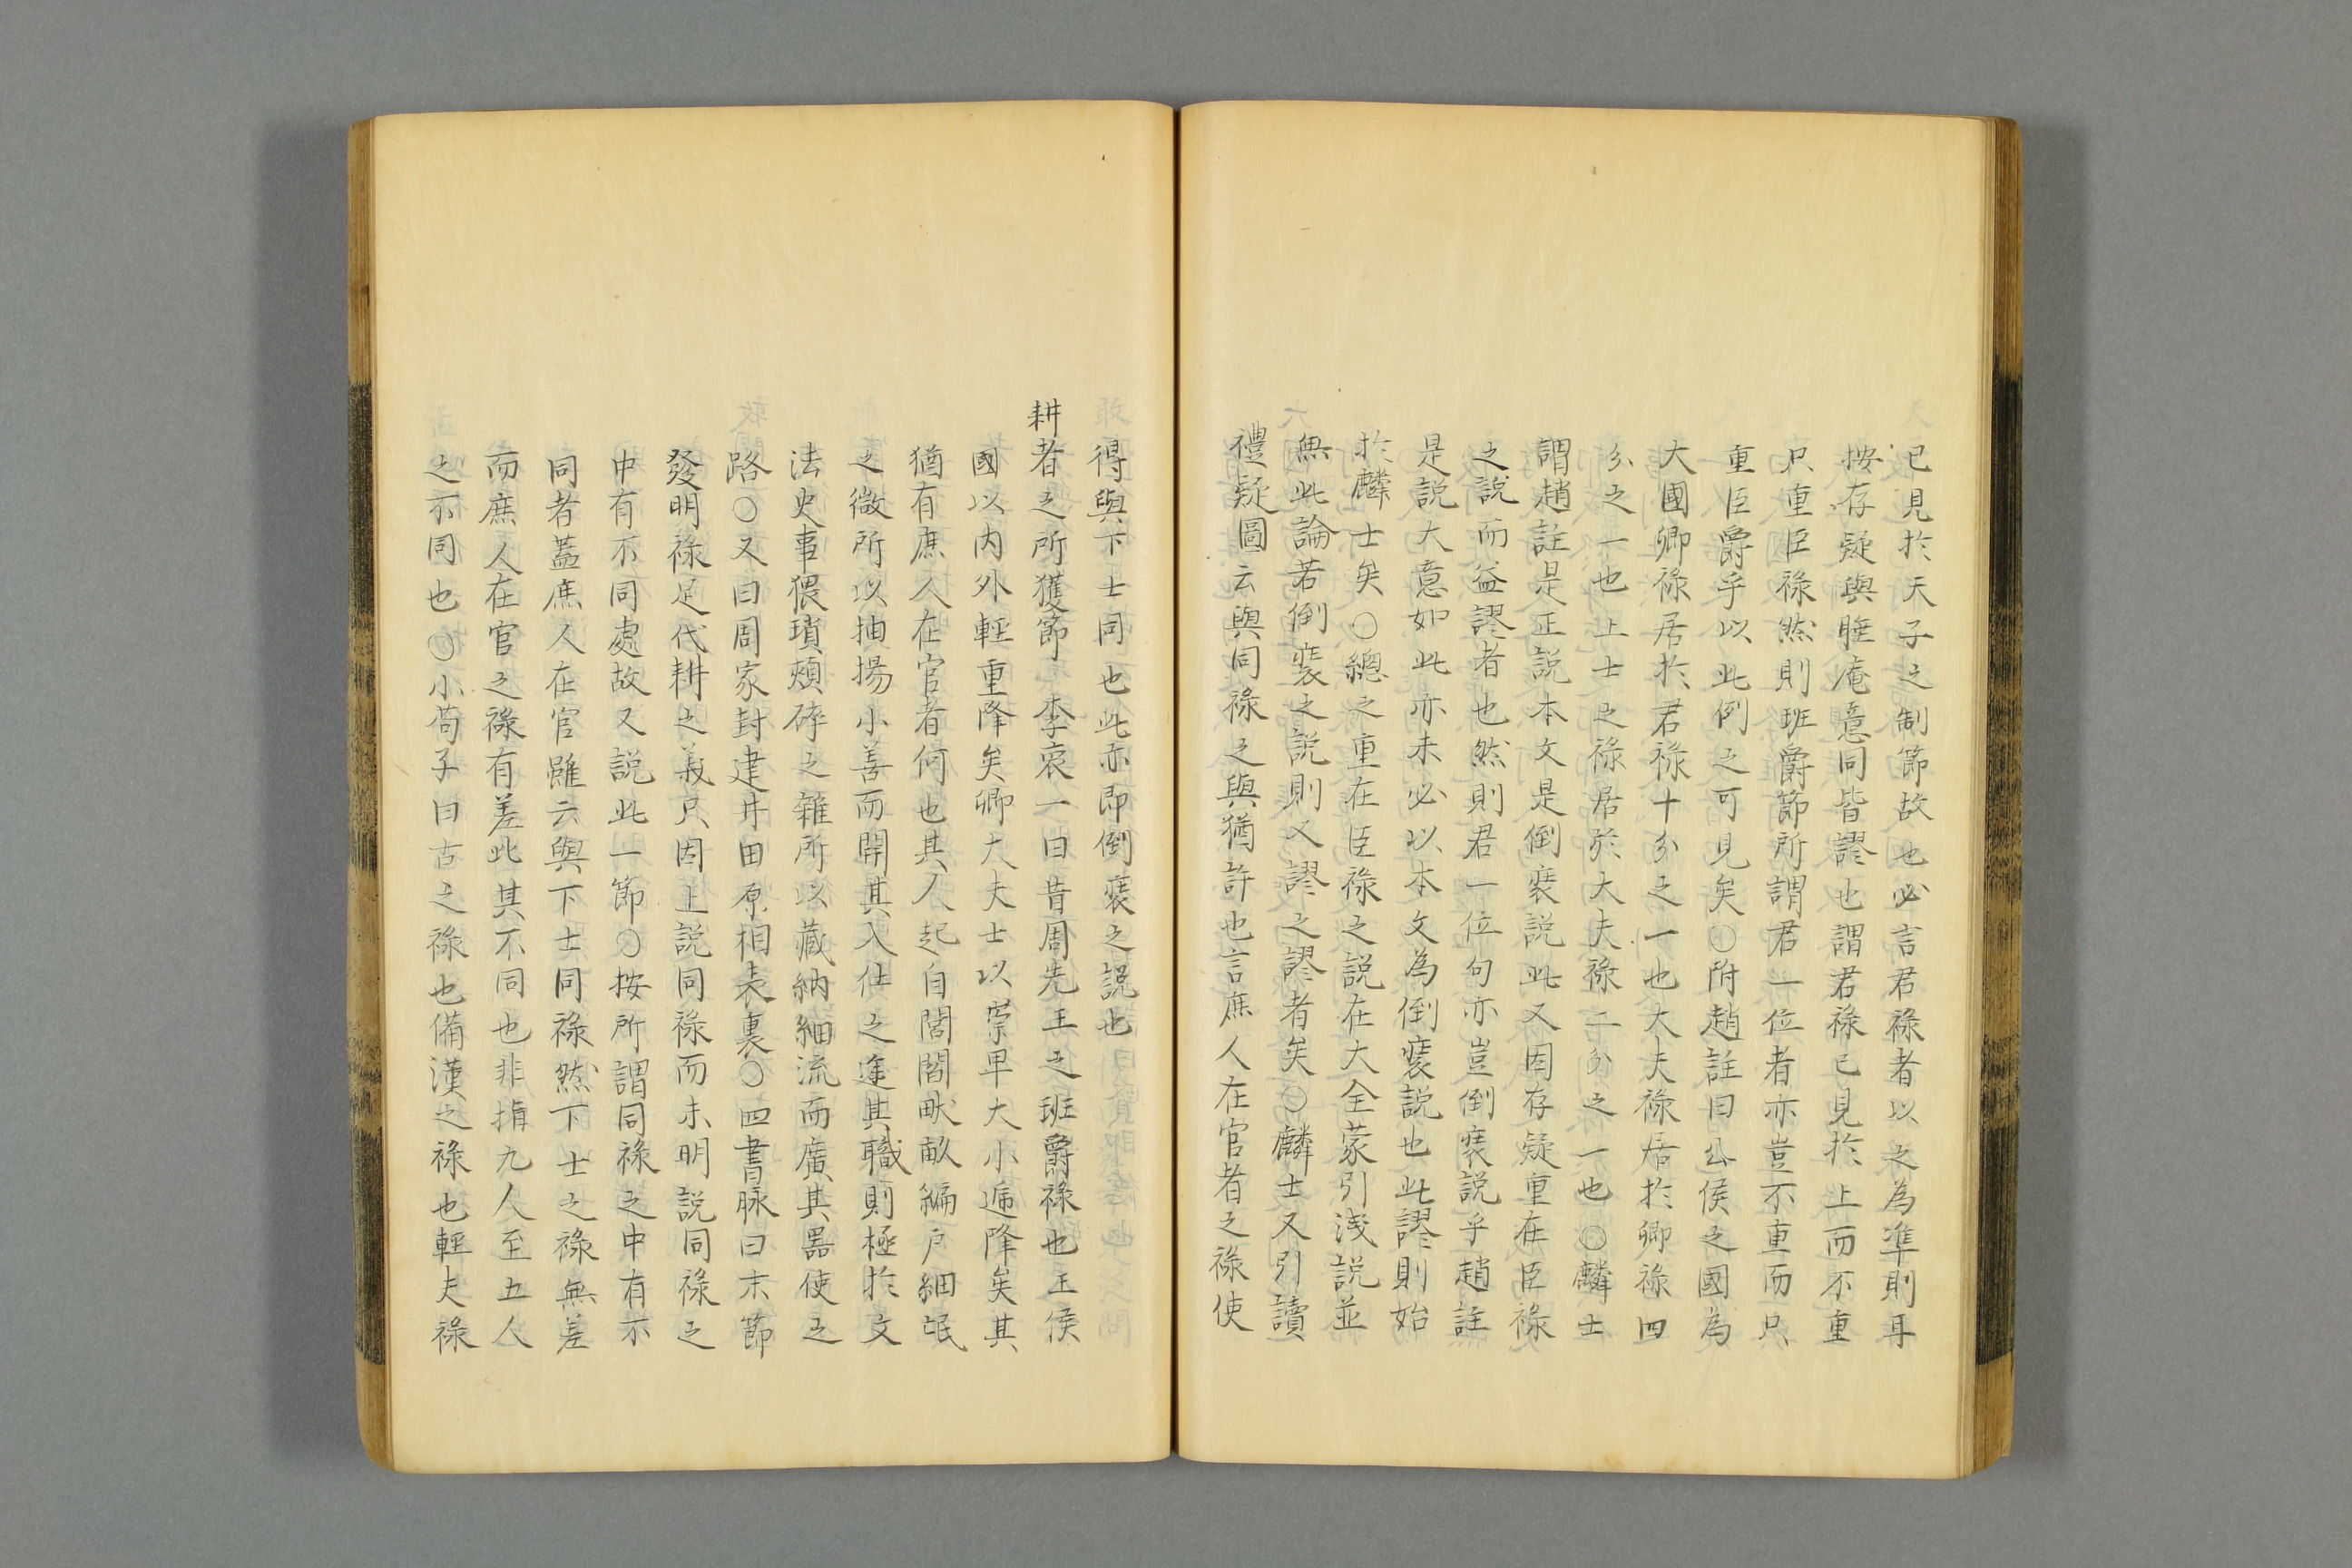 已見於天子之制節故也必言君祿者以之為準則耳
按存疑與睡庵意同皆謬也謂君祿已見於上而不重
只重臣祿然則班爵節所謂君一位者亦豈不重而只
重臣爵乎以此例之可見矣○附趙註曰公侯之國為
大國卿祿居於君祿十分之一也大夫祿居於卿祿四
分之一也上士之祿居於大夫祿二分之一也○麟士
謂趙註是正説本文是倒裝説此又因存疑重在臣祿
之說而益謬者也然則君一位句亦豈倒裝説乎趙註
是説大意如此亦未必以本文為倒裝説也此謬則始
於麟士矣○總之重在臣祿之説在大全蒙引淺説並
無此論若倒裝之説則又謬之謬者矣○麟士又引讀
禮疑圖云與同祿之與猶許也言庶人在官者之祿使
得與下士同也此亦即倒裝之説也
耕者之所獲節 李衷一曰昔周先王之班爵祿也王侯
國以内外輕重降矣卿大夫士以崇卑大小遞降矣其
猶有庶人在官者何也其人起自閭閻畎畝編户細氓
之微所以抽揚小善而開其入仕之途其職則極於文
法史事猥瑣頰碎之雜所以藏納細流而廣其器使之
路○又曰周家封建井田原相表裏○四書脉曰末節
發明祿足代耕之義只因上説同祿而未明説同祿之
中有不同處故又説此一節○按所謂同祿之中有不
同者蓋庶人在官雖云與下士同祿然下士之祿無差
而庶人在官之祿有差此其不同也非指九人至五人
之不同也○小荀子曰古之祿也備漢之祿也輕夫祿